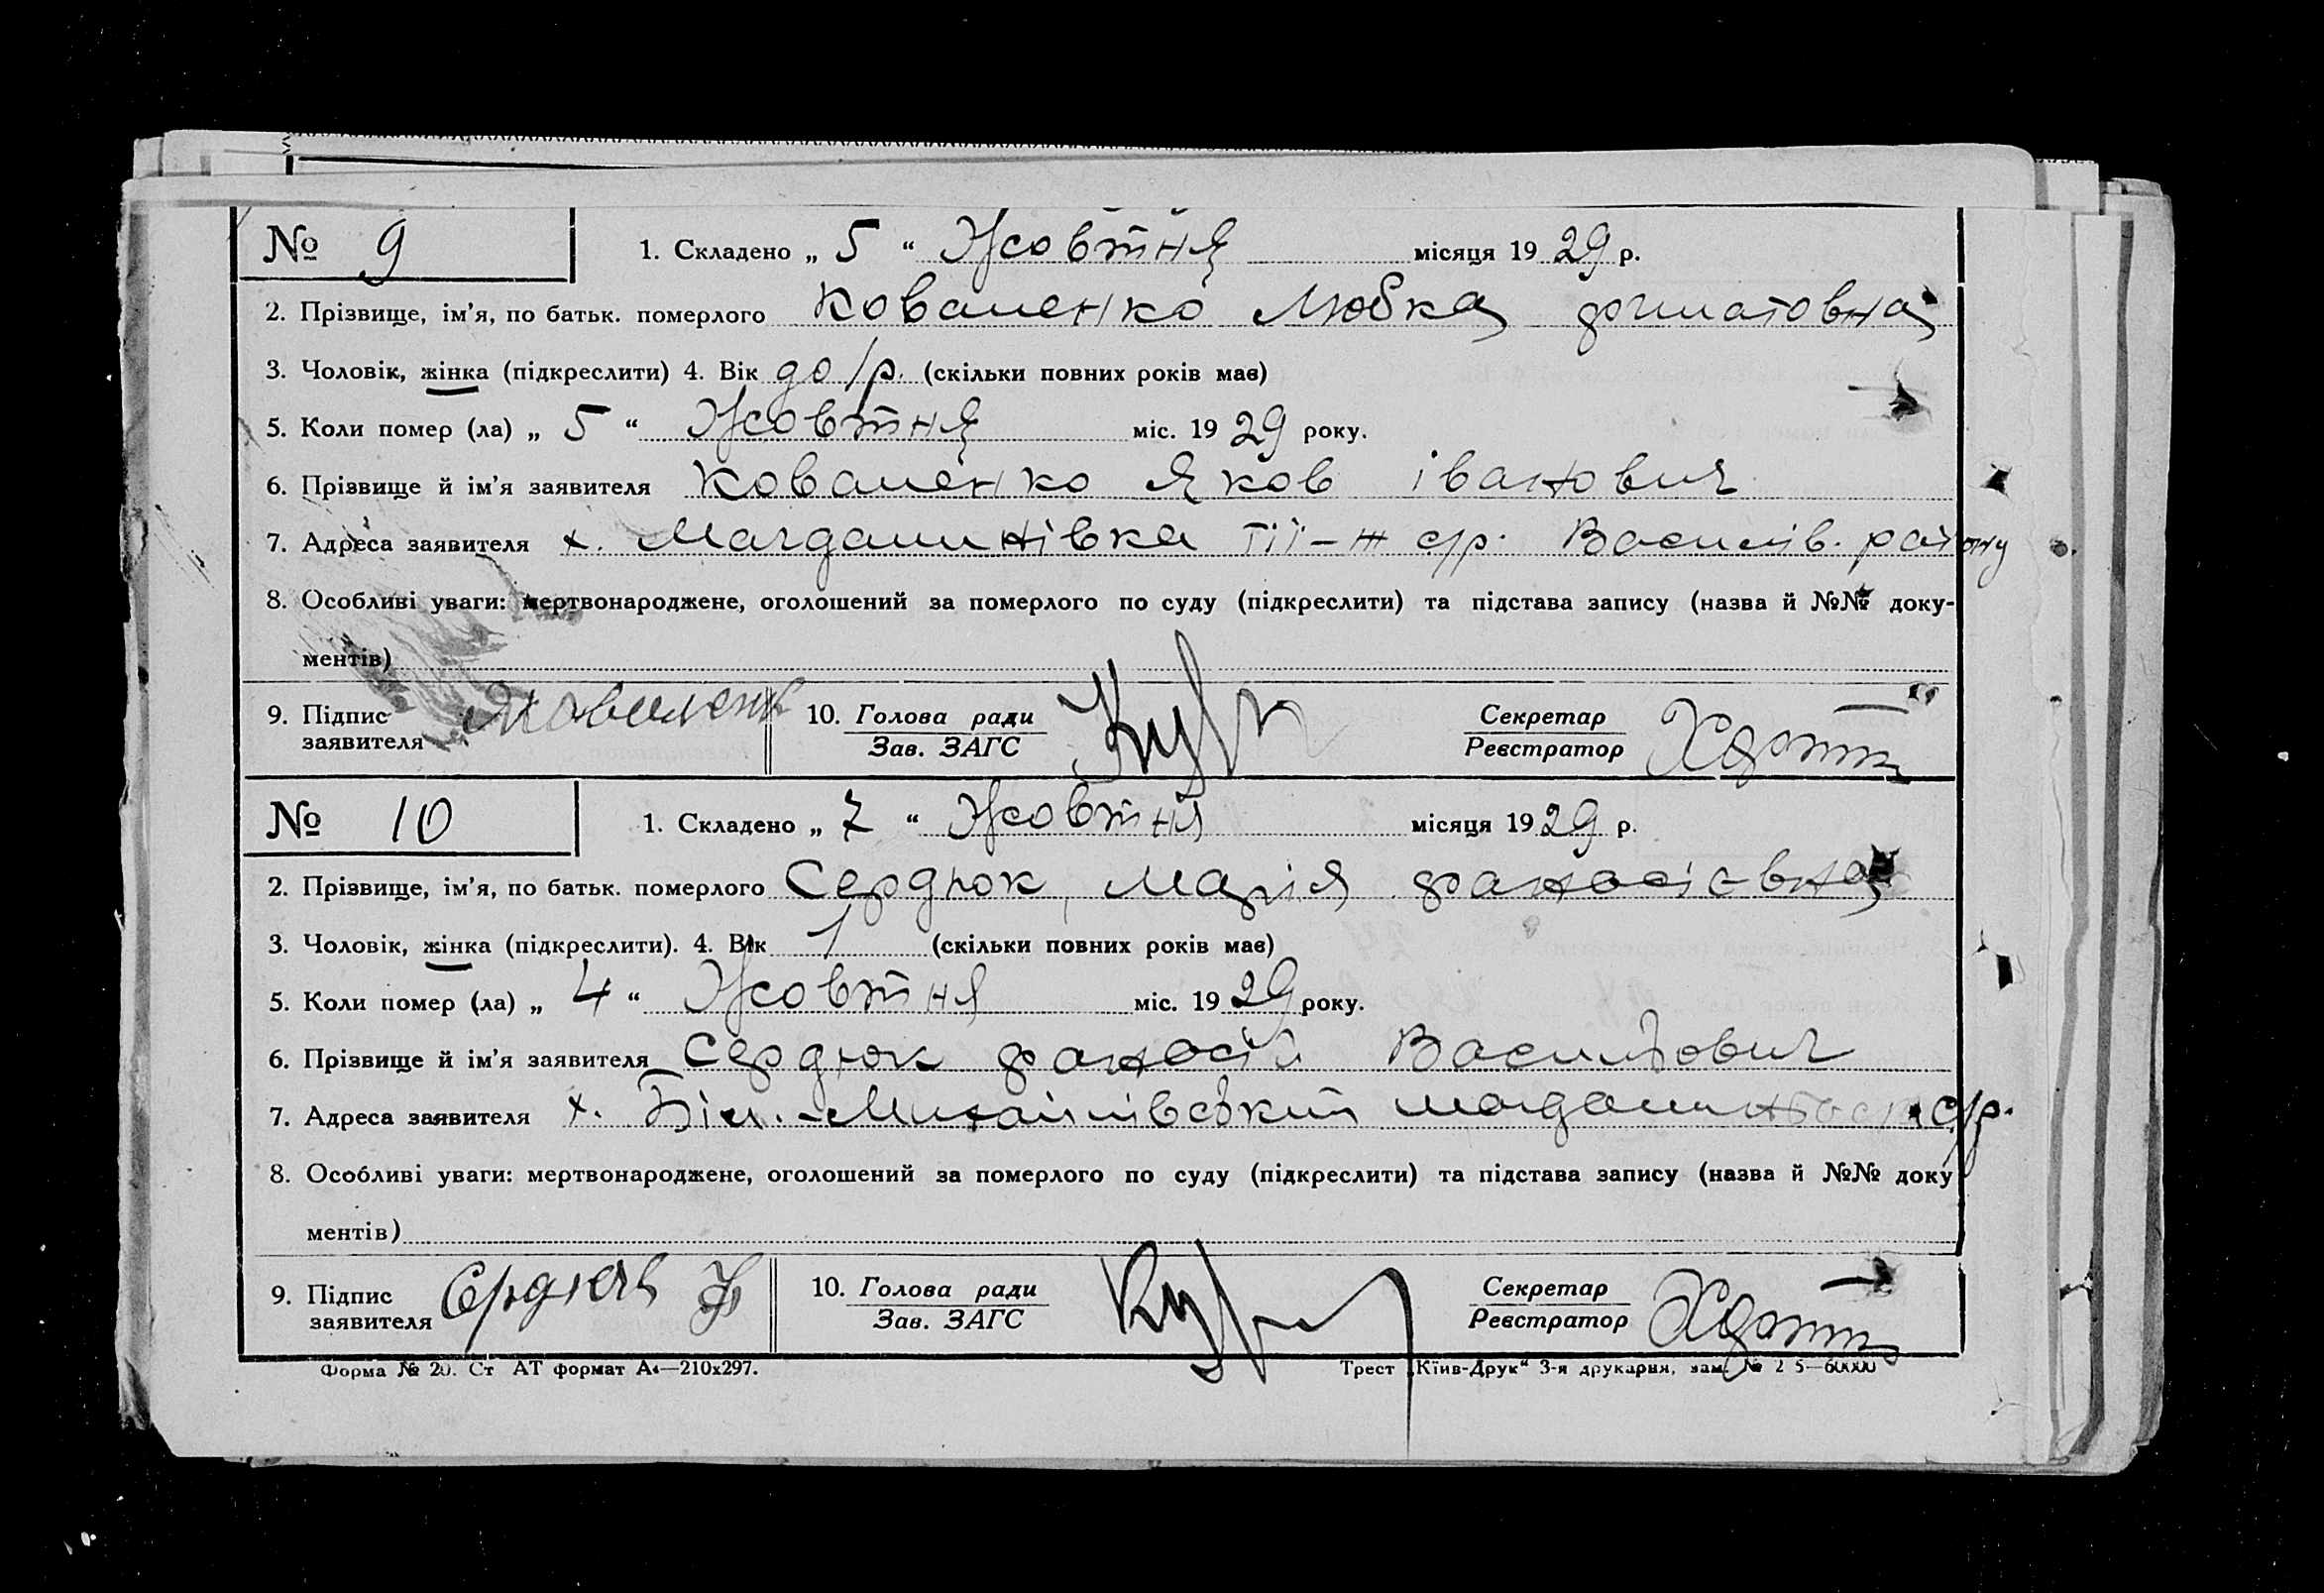 № 9 1. Складено „ 5 “ Жовтня місяця 19 29 р.
2. Прізвище, ім'я, по батьк. померлого Коваленко Любка
3. Чоловік, жінка (підкреслити) 4. Вік до 1 р. (скільки повних років має)
5. Коли помер (ла) „ 5 “ Жовтня міс. 19 29 року.
6. Прізвище й ім'я заявителя Коваленко Яков Іванович
7. Адреса заявителя х. с/р. Василів. району
8. Особливі уваги: мертвонароджене, оголошений за померлого по суду (підкреслити) та підстава запису (назва й №№ доку-
ментів)
9. Підпис заявителя 10. Голова ради Зав. ЗАГС Секретар Реєстратор
№ 10 1. Складено „ 7 “ Жовтня місяця 19 29 р.
2. Прізвище, ім'я, по батьк. померлого Сердюк Марія фанасівна
3. Чоловік, жінка (підкреслити). 4. Вік 1 (скільки повних років має)
5. Коли помер (ла) „ 4 “ Жовтня міс. 19 29 року.
6. Прізвище й ім'я заявителя Сердюк фанасій Васильович
7. Адреса заявителя х. Біл.-Михайлівський с/р.
8. Особливі уваги: мертвонароджене, оголошений за померлого по суду (підкреслити) та підстава запису (назва й №№ доку
ментів)
9. Підпис заявителя 10. Голова ради Зав. ЗАГС Секретар Реєстратор
Форма № 20. Ст АТ формат А4—210х297. Трест „Київ-Друк“ 3-я друкарня, зам. №